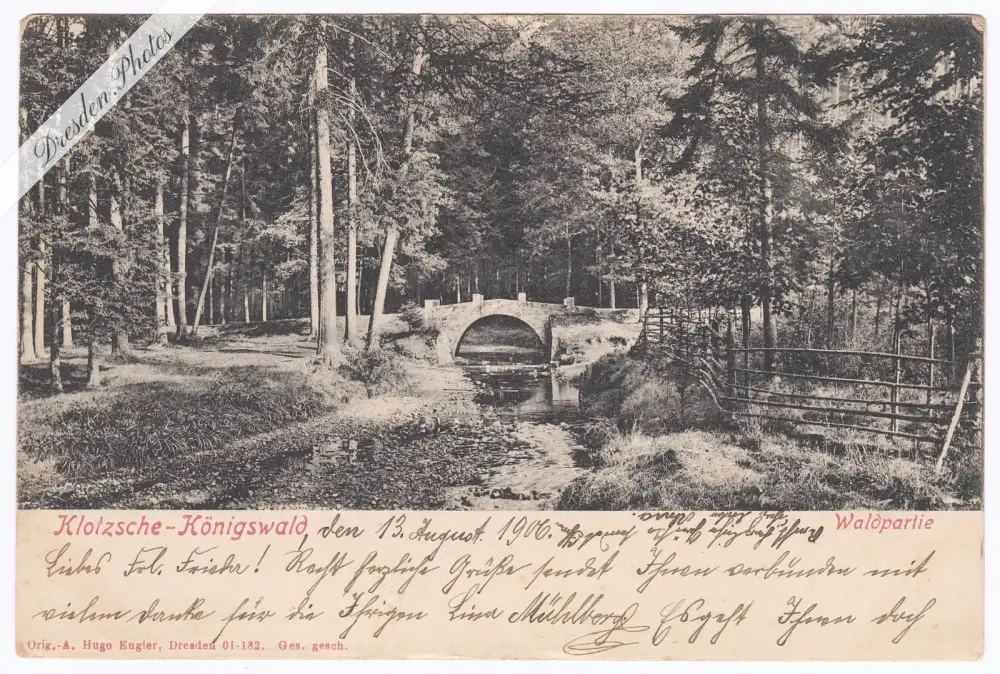 Dresden.Photos
Klotzsche-Königswald
Waldpartie
den 13. August. 1906.
Liebes Frl. Frieda! Recht herzliche Grüße sendet Ihnen verbunden mit
vielem Danke für die Ihrigen Lina Mühlberg. Es geht Ihnen doch
Orig.-A. Hugo Engler, Dresden 01-182. Ges. gesch.